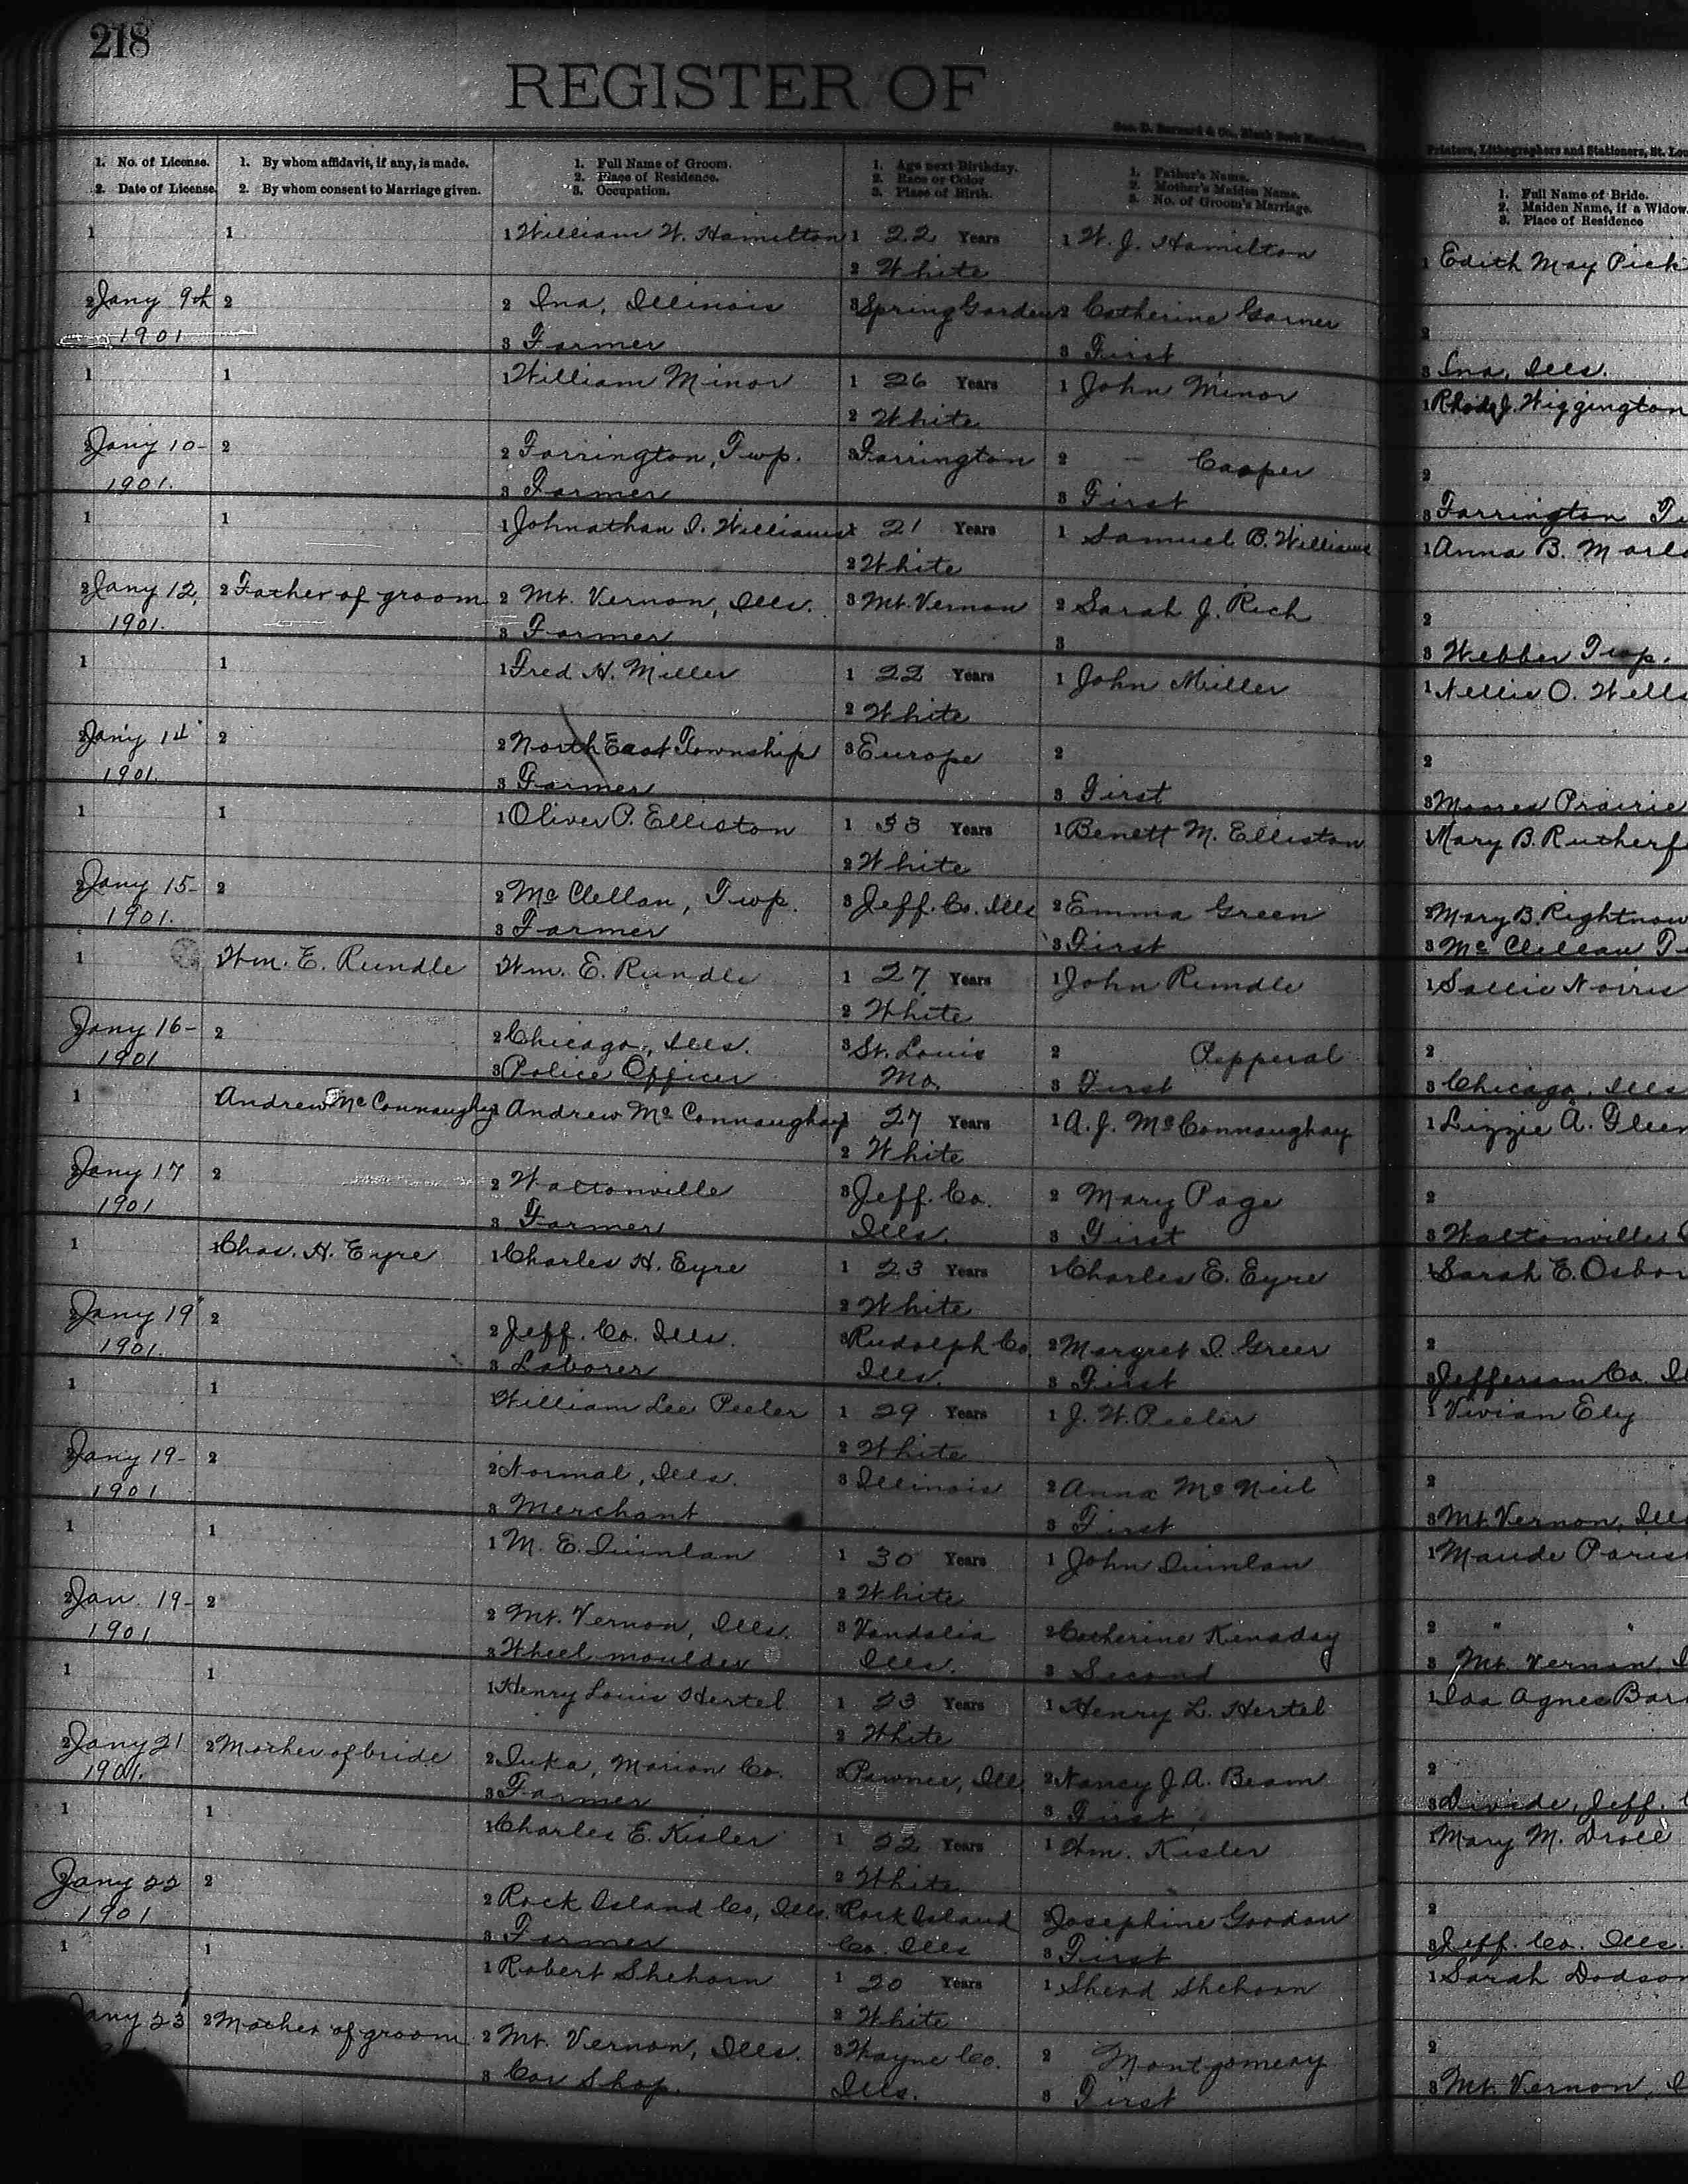 218
REGISTER OF
Geo. D. Barnard & Co., Blank Book
Printers, Lithographers and Stationers, St. Lou
1. No. of License.
2. Date of License.
1. By whom affidavit, if any, is made.
2. By whom consent to Marriage given.
1. Full Name of Groom.
2. Place of Residence.
3. Occupation.
1. Age next Birthday.
2. Race or Color
3. Place of Birth.
1. Father's Name.
2. Mother's Maiden Name.
3. No. of Groom's Marriage.
1. Full Name of Bride.
2. Maiden Name, if a Widow.
3. Place of Residence
1 1 1 William W. Hamilton 1 22 Years 1 W. J. Hamilton 1 Edith May Pick
2 White
2 Jany 9th 2 2 Ina, Illinois 3 Spring Garden 2 Catherine Garner 2
1901 3 Farmer 3 First 3 Ina, Ills.
1 1 1 William Minor 1 26 Years 1 John Minor 1 Rhoda J. Wiggington
2 White
2 Jany 10- 2 2 Farrington, Twp. 3 Farrington 2 - Cooper 2
1901. 3 Farmer 3 First 3 Farrington T
1 1 1 Johnathan I. Williams 1 21 Years 1 Samuel B. Williams 1 Anna B. Marl
2 White
2 Jany 12, 2 Father of groom 2 Mt. Vernon, Ills. 3 Mt. Vernon 2 Sarah J. Rich 2
1901. 3 Farmer 3 3 Webber Twp.
1 1 1 Fred H. Miller 1 22 Years 1 John Miller 1 Nellie O. Wells
2 White
2 Jany 14 2 2 North East Township 3 Europe 2 2
1901. 3 Farmer 3 First 3 Moores Prairie
1 1 1 Oliver P. Elliston 1 33 Years 1 Benett M. Elliston 1 Mary B. Rutherf
2 White
2 Jany 15- 2 2 McClellan, Twp. 3 Jeff. Co. Ills 2 Emma Green 2 Mary B. Rightnow
1901. 3 Farmer 3 First 3 McClellan T
1 1 Wm. E. Rundle 1 Wm. E. Rundle 1 27 Years 1 John Rundle 1 Sallie Norris
2 White
2 Jany 16- 2 2 Chicago, Ills. 3 St. Louis 2 Pepperal 2
1901 3 Police Officer Mo. 3 First 3 Chicago, Ills
1 1 Andrew McConnaughy 1 Andrew McConnaughay 1 27 Years 1 A. J. McConnaughay 1 Lizzie A. Gleen
2 White
2 Jany 17 2 2 Waltonville 3 Jeff. Co. 2 Mary Page 2
1901 3 Farmer Ills. 3 First 3 Waltonville
1 1 Chas. H. Eyre 1 Charles H. Eyre 1 23 Years 1 Charles E. Eyre 1 Sarah E. Osbor
2 White
2 Jany 19 2 2 Jeff. Co. Ills. 3 Rudolph Co. 2 Margret I. Greer 2
1901. 3 Laborer Ills. 3 First 3 Jefferson Co. Il
1 1 1 William Lee Peeler 1 29 Years 1 J. W. Peeler 1 Vivian Ely
2 White
2 Jany 19- 2 2 Normal, Ills. 3 Illinois 2 Anna McNeil 2
1901 3 Merchant 3 First 3 Mt. Vernon, Ill
1 1 1 M. E. Quinlan 1 30 Years 1 John Quinlan 1 Maude Paris
2 White
2 Jan. 19- 2 2 Mt. Vernon, Ills. 3 Vandalia 2 Catherine Kenaday 2 " "
1901 3 Wheel moulder Ills. 3 Second 3 Mt. Vernon, I
1 1 1 Henry Louis Hertel 1 23 Years 1 Henry L. Hertel 1 Ida Agnes Bar
2 White
2 Jany 21 2 Mother of bride 2 Iuka, Marion Co. 3 Pawnee, Ill 2 Nancy J. A. Beam 2
1901. 3 Farmer 3 First 3 Divide, Jeff.
1 1 1 Charles E. Kisler 1 22 Years 1 Wm. Kisler 1 Mary M. Droll
2 White
2 Jany 22 2 2 Rock Island Co, Ills. 3 Rock Island 2 Josephine Goodau 2
1901 3 Farmer Co. Ills 3 First 3 Jeff. Co. Ills.
1 1 1 Robert Shehorn 1 20 Years 1 Sherd Shehorn 1 Sarah Dodson
2 White
Jany 23 2 Mother of groom 2 Mt. Vernon, Ills. 3 Wayne Co. 2 Montgomery 2
3 Car Shop. Ills. 3 First 3 Mt. Vernon, I